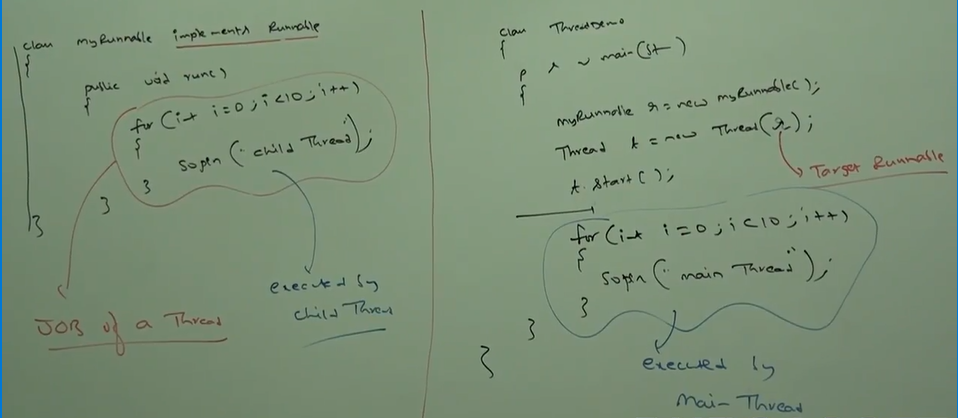 class myRunnable implements Runnable
{
public void run()
{
for (int i=0; i<10; i++)
{
Sopln ("child Thread");
}
}
}
JOB of a Thread
executed by
child Thread
class ThreadDemo
{
p s v main(St—)
{
myRunnable r = new myRunnable();
Thread t = new Thread(r);
t.start();
Target Runnable
for (int i=0; i<10; i++)
{
Sopln ("main Thread");
}
}
}
executed by
Main-Thread